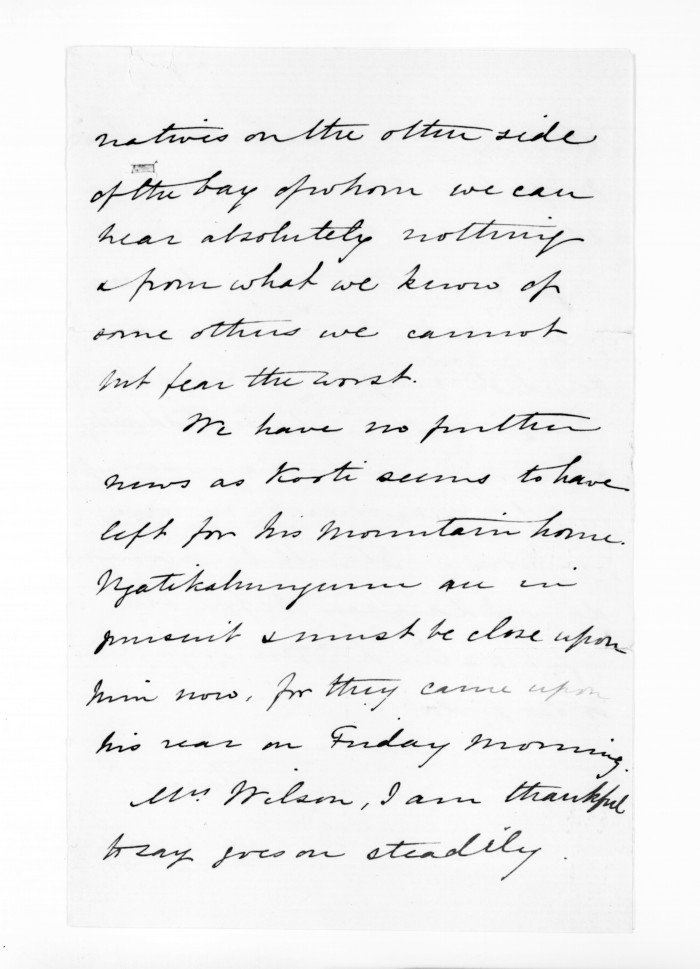 natives on the other side
of the bay of whom we can
hear absolutely nothing
& from what we know of
some others we cannot
but fear the worst.
We have no further
news as Kooti seems to have
left for his mountain home.
Ngatikahungunu are in
pursuit & must be close upon
him now, for they came upon
his rear on Friday morning.
Mrs Wilson, I am thankful
to say goes on steadily.